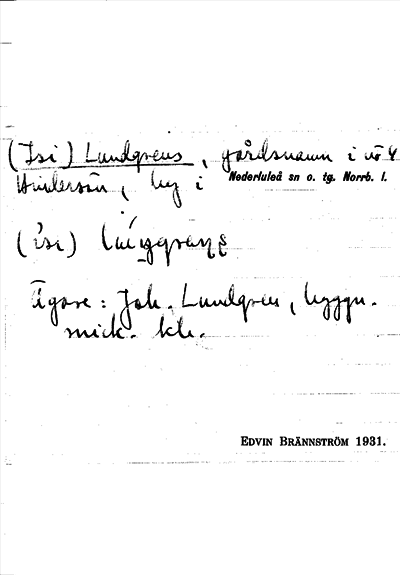 (Isi) Lundgrens, gårdsnamn i nö 4
Hindersön, by i Nederluleå sn o. tg. Norrb. l.
Ägare: Joh. Lundgren, byggn.
snick. kh.
EDVIN BRÄNNSTRÖM 1931.